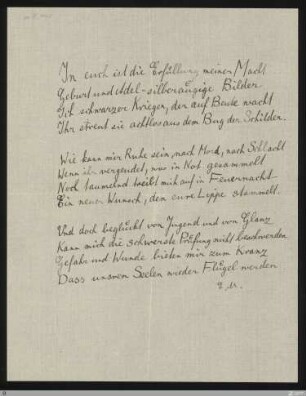 In euch ist die Erfüllung meiner Macht
Geburt und Adel - silberäugige Bilder
Ich schwarzer Krieger, der auf Beute wacht
Ihr streut sie achtlos aus dem Bug der Schilder.
Wie kann mir Ruhe sein, nach Mord, nach Schlacht
Wenn ihr vergeudet, was in Not gesammelt
Noch taumelnd treibt mich auf in Feuernacht
Ein neuer Wunsch, den eure Lippe stammelt.
Und doch beglückt von Jugend und von Glanz
Kann mich die schwerste Prüfung nicht beschwerden
Gefahr und Wunde bieten mir zum Kranz
Dass unsren Seelen wieder Flügel werden